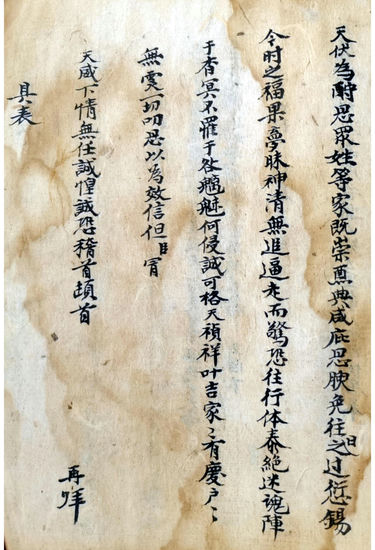 天伏為酧恩眾姓等家既崇薦典咸庇恩腴免往日之过愆錫
今时之福果夢昧神清無追逼走而驚恐往行体泰絕迷魂陣
于杳冥不罹于咎魑魅何侵誠可格天禎祥叶吉家〻有慶户〻
無虞一切叨恩以為效信但臣冒
天威下情無任誠惶誠恐稽首頓首
具表
再拜